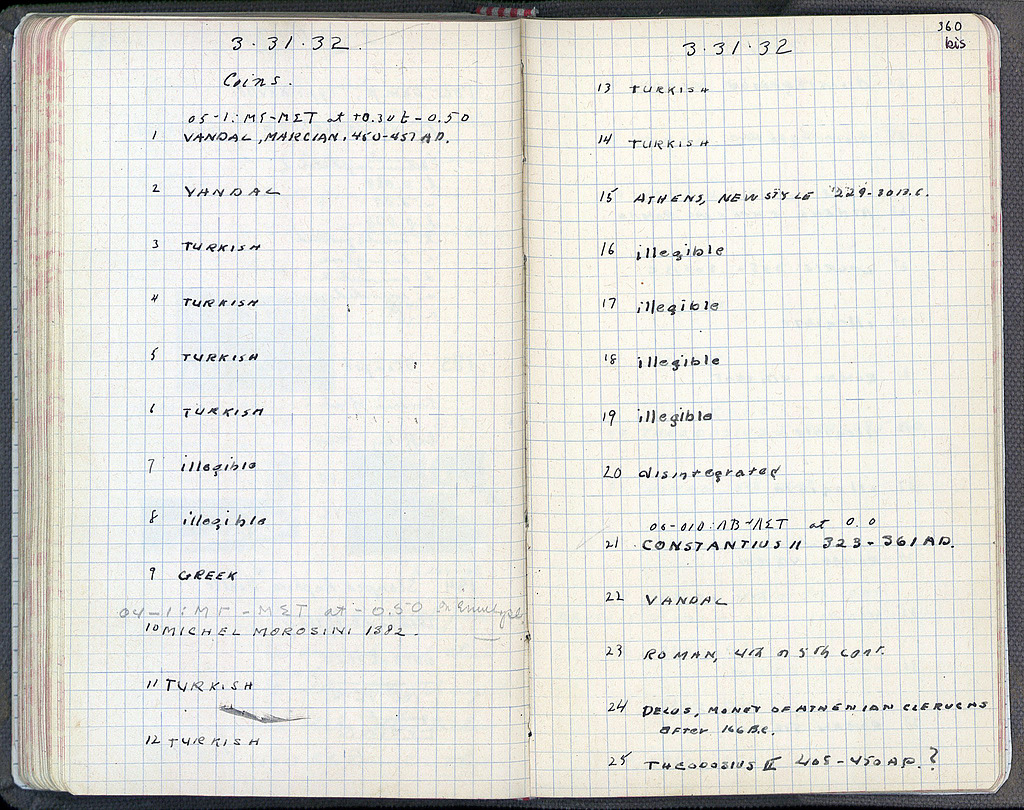 3·31·32.
Coins.
05-1: ΜΣ-ΜΣΤ at +0.30 -0.50
1 VANDAL, MARCIAN, 450-457 AD.
2 VANDAL
3 TURKISH
4 TURKISH
5 TURKISH
6 TURKISH
7 illegible
8 illegible
9 GREEK
04-1: -ΜΣΤ at -0.50
10 MICHEL MOROSINI 1382.
11 TURKISH
12 TURKISH
360
bis
3·31·32
13 TURKISH
14 TURKISH
15 ATHENS, NEW STYLE 229-30 B.C.
16 illegible
17 illegible
18 illegible
19 illegible
20 disintegrated
at 0.0
21 CONSTANTIUS II 323-361 AD.
22 VANDAL
23 ROMAN, 4th or 5th cent.
24 DELOS, MONEY OF ATHENIAN CLERUCHS
after 166 B.C.
25 THEODOSIUS II 408-450 AD.?